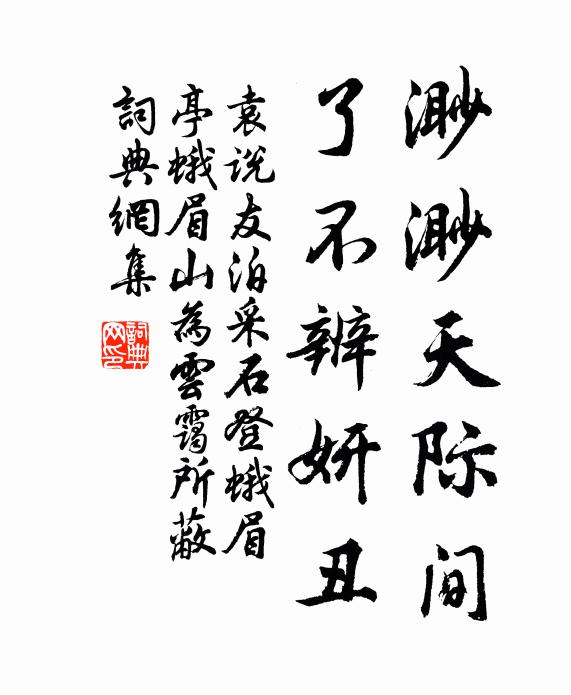 渺渺天际间
了不辨妍丑
袁说友泊采石登蛾眉
亭蛾眉山為雲靄所蔽
詞典網集
詞典网印